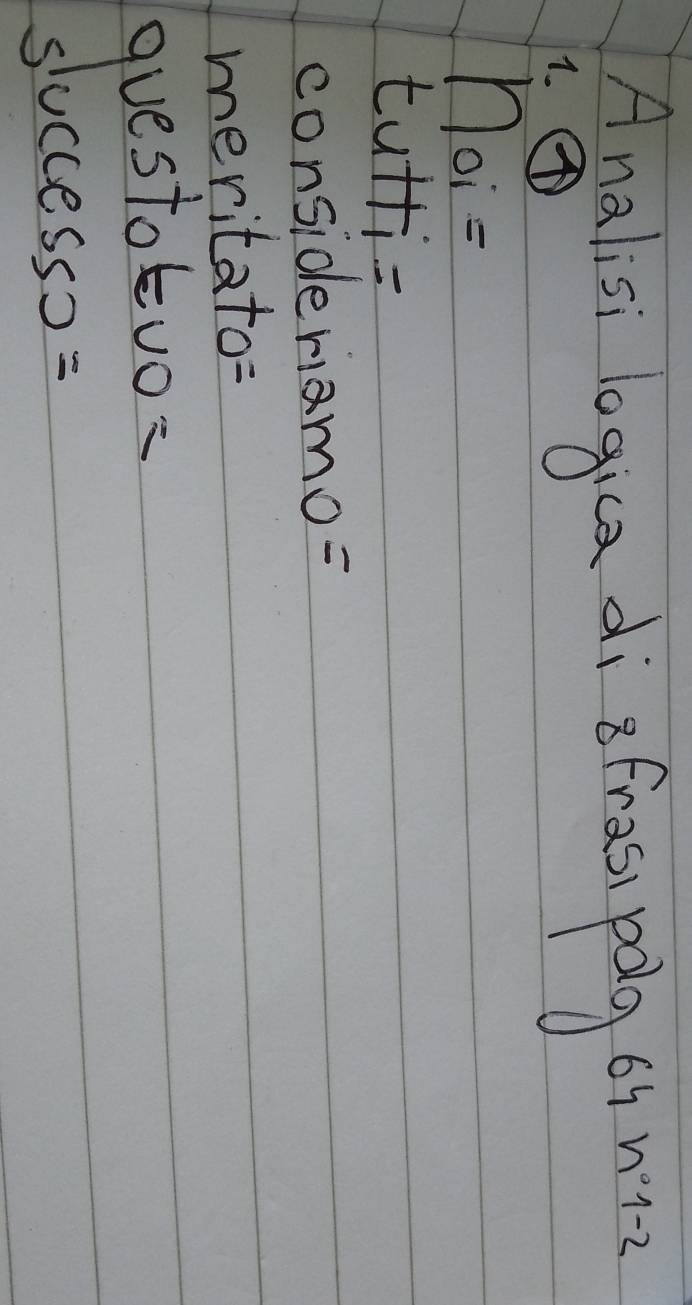 Analisi logica di 8 frasi pag 64 n°1-2
1. 1
Noi =
tutti =
consideriamo =
meritato =
questo tuo =
successo =